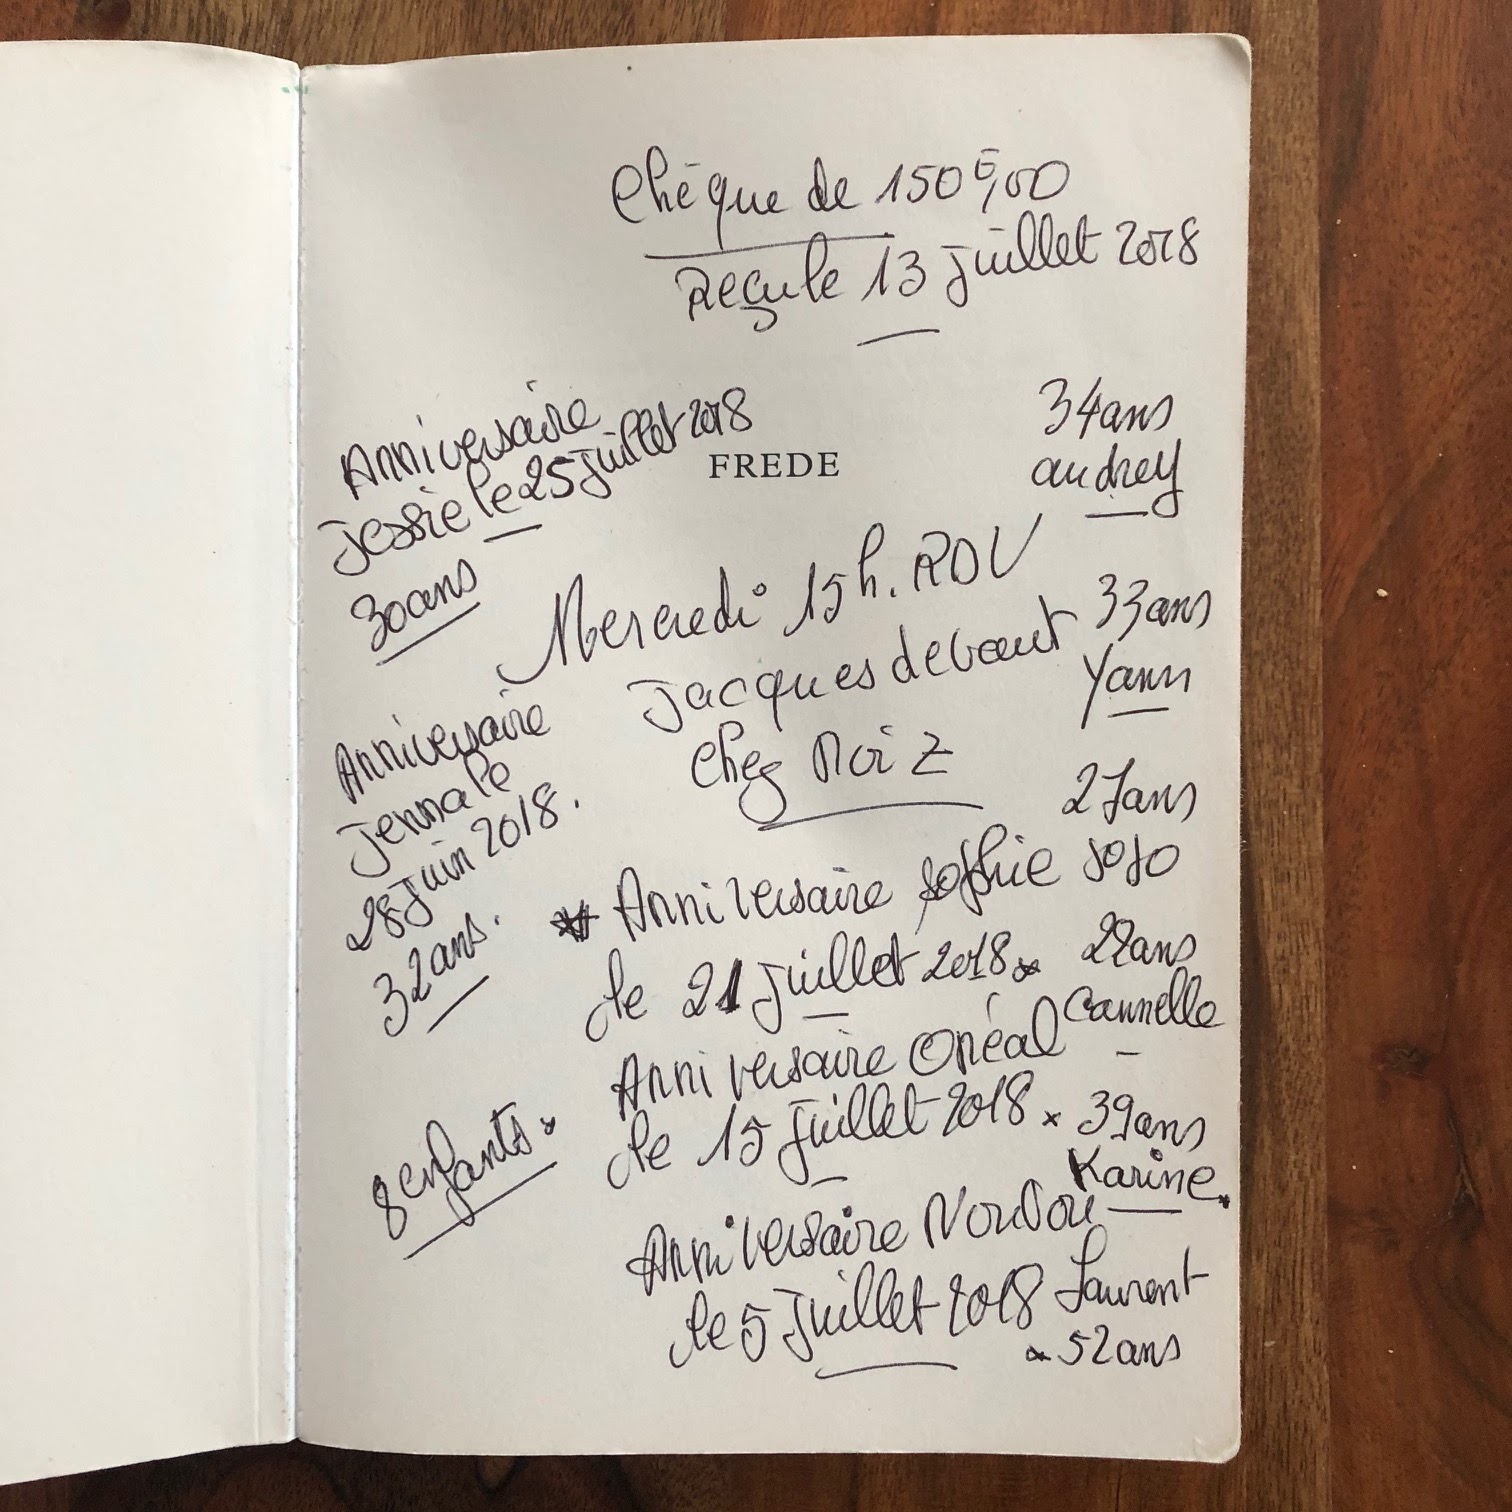 Chèque de 150€,00
Reçu le 13 juillet 2018
Anniversaire
Jessie le 25 juillet 2018
30ans
FREDE
34ans
audrey
Mercredi 15h. RDV
Jacques devant
Chez Moi Z
33ans
Yann
Anniversaire
Jenna le
28 juin 2018.
32ans.
27ans
Jojo
Anniversaire Sophie
le 21 juillet 2018
22ans
Cannelle
Anniversaire Oréal
le 15 juillet 2018 ×
39ans
Karine.
8 enfants.
Anniversaire
le 5 juillet 2018
Laurent
52ans